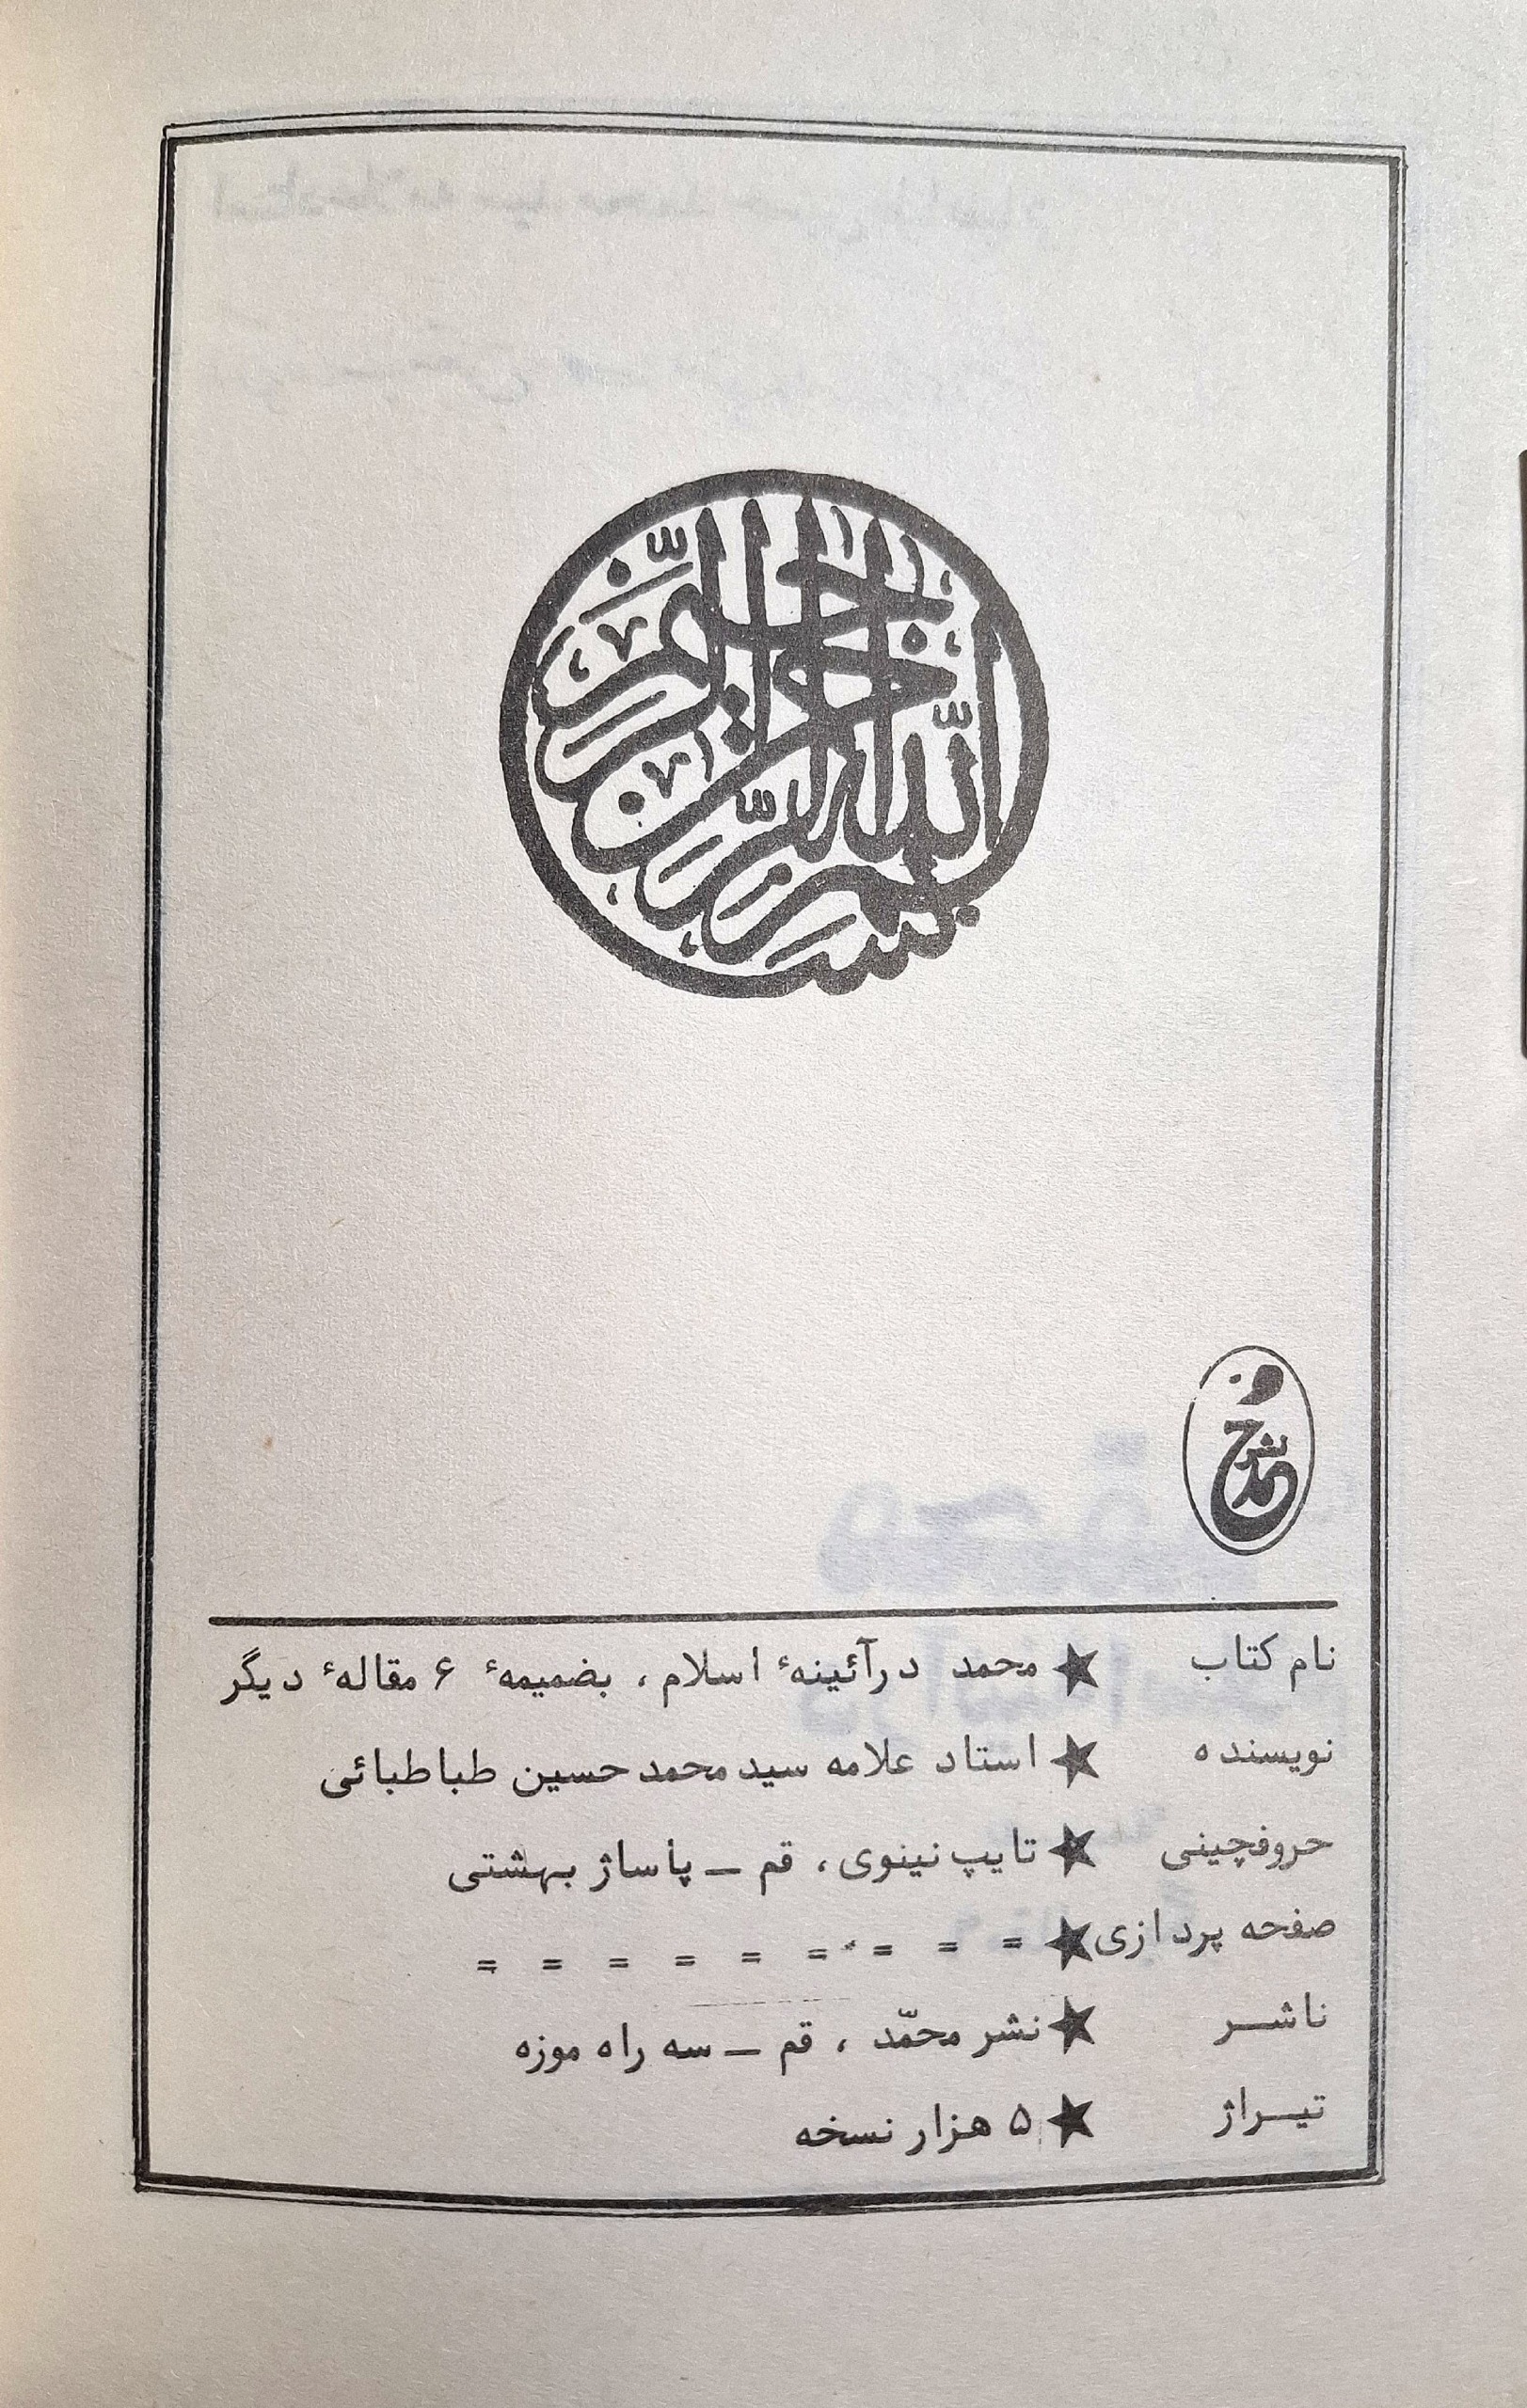 بسم الله الرحمن الرحيم
نشر محمد
نام کتاب ★ محمد درآئینهٔ اسلام ، بضمیمهٔ ۶ مقالهٔ دیگر
نویسنده ★ استاد علامه سید محمد حسین طباطبائی
حروفچینی ★ تایپ نینوی ، قم ــ پاساژ بهشتی
صفحه پردازی ★ = = = = = = = = =
ناشـــر ★ نشر محمّد ، قم ــ سه راه موزه
تیـــراژ ★ ۵ هزار نسخه